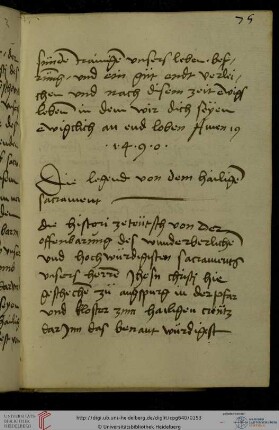 75
sünde rainigen unsers leben bes-
rung und ein güt endt verlei-
chen und nach disem zeit ewigs
leben in dem wir dich seyen
Ewigklich an end loben Amen 19
· 1 · 4 · 9 · 0 ·
Die legend von dem hailigen
sacrament
die histori zeteütsch von der
offenbarung des wunderberliche
und hochwürdigisten sacraments
unsers herren Jhesu christi hie
geschechē zü augspurg in der pfar
und kloster zum hailigen creütz
darInn das benant würdigest
UNIVERSITÄTS-
BIBLIOTHEK
HEIDELBERG
http://digi.ub.uni-heidelberg.de/diglit/cpg640/0153
© Universitätsbibliothek Heidelberg